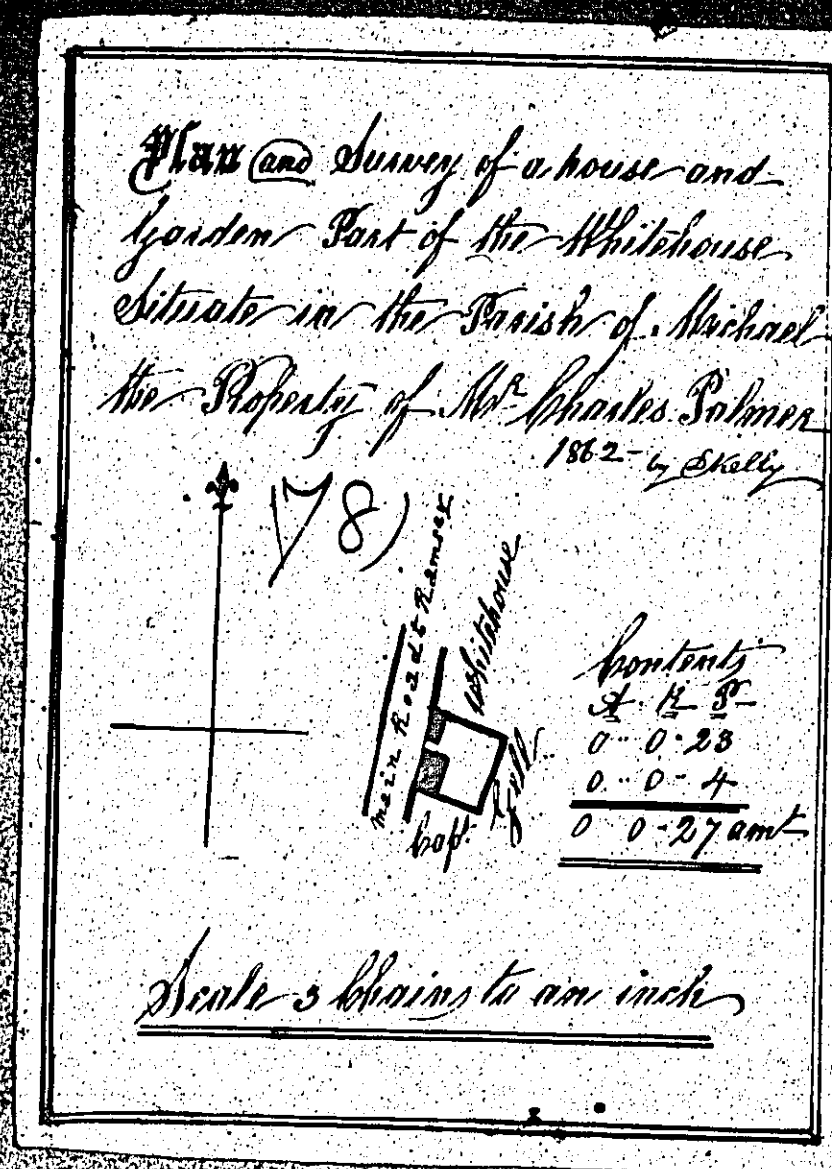 Plan and Survey of a house and
Garden Part of the Whitehouse
Situate in the Parish of Michael
the Property of Mr Charles Palmer
1862 - by Skelly
78)
main Road to Ramsey
Whitehouse
Capt.
Contents
A. R. P.
0 .. 0 . 23
0 .. 0 - 4
0 0 - 27 amt
Scale 3 Chains to an inch